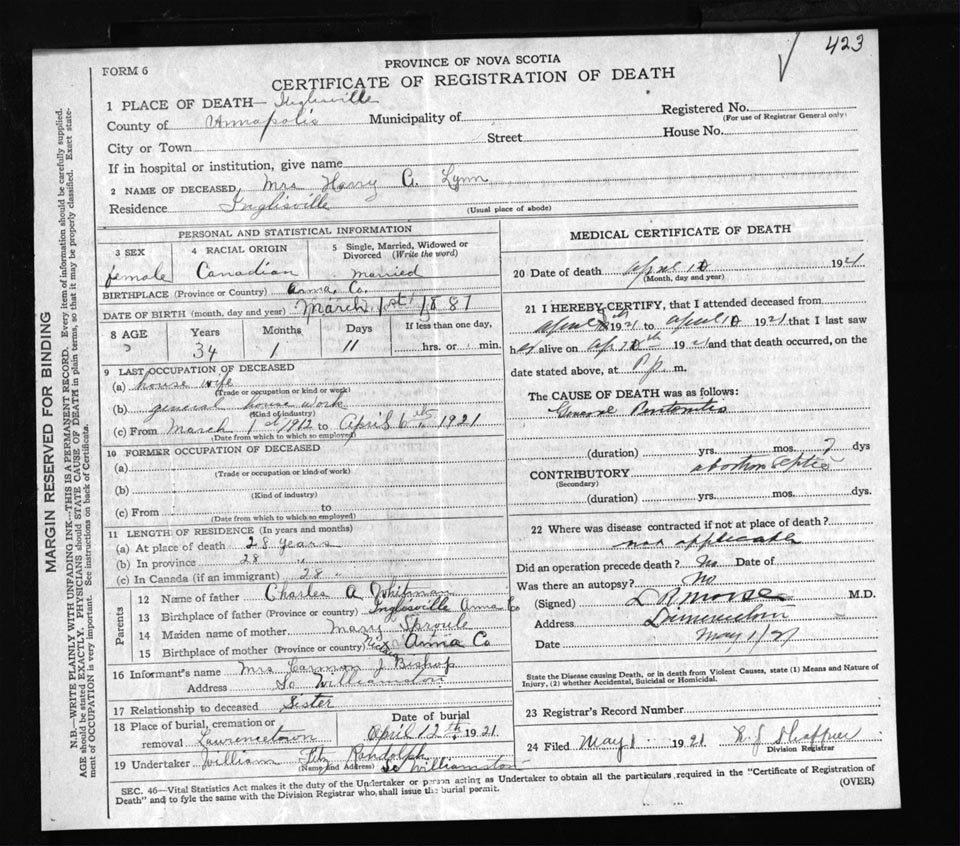 423
PROVINCE OF NOVA SCOTIA
FORM 6
CERTIFICATE OF REGISTRATION OF DEATH
1 PLACE OF DEATH— Inglisville
County of Annapolis Municipality of Registered No.
(For use of Registrar General only)
City or Town Street House No.
If in hospital or institution, give name
2 NAME OF DECEASED, Mrs Harry A. Lynn
Residence Inglisville (Usual place of abode)
MARGIN RESERVED FOR BINDING
N.B.—WRITE PLAINLY WITH UNFADING INK—THIS IS A PERMANENT RECORD. Every item of information should be carefully supplied.
AGE should be stated EXACTLY. PHYSICIANS should STATE CAUSE OF DEATH in plain terms, so that it may be properly classified. Exact state-
ment of OCCUPATION is very important. See instructions on back of Certificate.
PERSONAL AND STATISTICAL INFORMATION
3 SEX 4 RACIAL ORIGIN 5 Single, Married, Widowed or
Divorced (Write the word)
female Canadian married
BIRTHPLACE (Province or Country) Anna. Co.
DATE OF BIRTH (month, day and year) March 1st 1887
8 AGE Years Months Days If less than one day,
34 1 11 hrs. or min.
9 LAST OCCUPATION OF DECEASED
(a) house wife
(Trade or occupation or kind of work)
(b) general house work
(Kind of industry)
(c) From March 1st 1912 to April 6th 1921
(Date from which to which so employed)
10 FORMER OCCUPATION OF DECEASED
(a)
(Trade or occupation or kind of work)
(b)
(Kind of industry)
(c) From to
(Date from which to which so employed)
11 LENGTH OF RESIDENCE (In years and months)
(a) At place of death 28 years
(b) In province 28 "
(c) In Canada (if an immigrant) 28 "
Parents
12 Name of father Charles A Whitman
13 Birthplace of father (Province or country) Inglisville Anna Co
14 Maiden name of mother Mary Sproule
15 Birthplace of mother (Province or country) Anna Co
16 Informant's name Mrs Carman J Bishop
Address So Williamston
17 Relationship to deceased Sister
18 Place of burial, cremation or Date of burial
removal Lawrencetown April 12th 1921
19 Undertaker William Fitz Randolph
(Name and Address) So Williamston
MEDICAL CERTIFICATE OF DEATH
20 Date of death April 10 1921
(Month, day and year)
21 I HEREBY CERTIFY, that I attended deceased from
April 8th 1921 to April 10 1921 that I last saw
her alive on Ap 10th 1921 and that death occurred, on the
date stated above, at P. m.
The CAUSE OF DEATH was as follows:
General Peritonitis
(duration) yrs. mos. 7 dys
CONTRIBUTORY abortion septic
(Secondary)
(duration) yrs. mos. dys.
22 Where was disease contracted if not at place of death?
not applicable
Did an operation precede death? No Date of
Was there an autopsy? No
(Signed) L R Morse M.D.
Address Lawrencetown
Date May 1/21
State the Disease causing Death, or in death from Violent Causes, state (1) Means and Nature of
Injury, (2) whether Accidental, Suicidal or Homicidal.
23 Registrar's Record Number
24 Filed May 1 1921 Shaffner
Division Registrar
SEC. 46—Vital Statistics Act makes it the duty of the Undertaker or person acting as Undertaker to obtain all the particulars required in the "Certificate of Registration of
Death" and to fyle the same with the Division Registrar who shall issue the burial permit. (OVER)